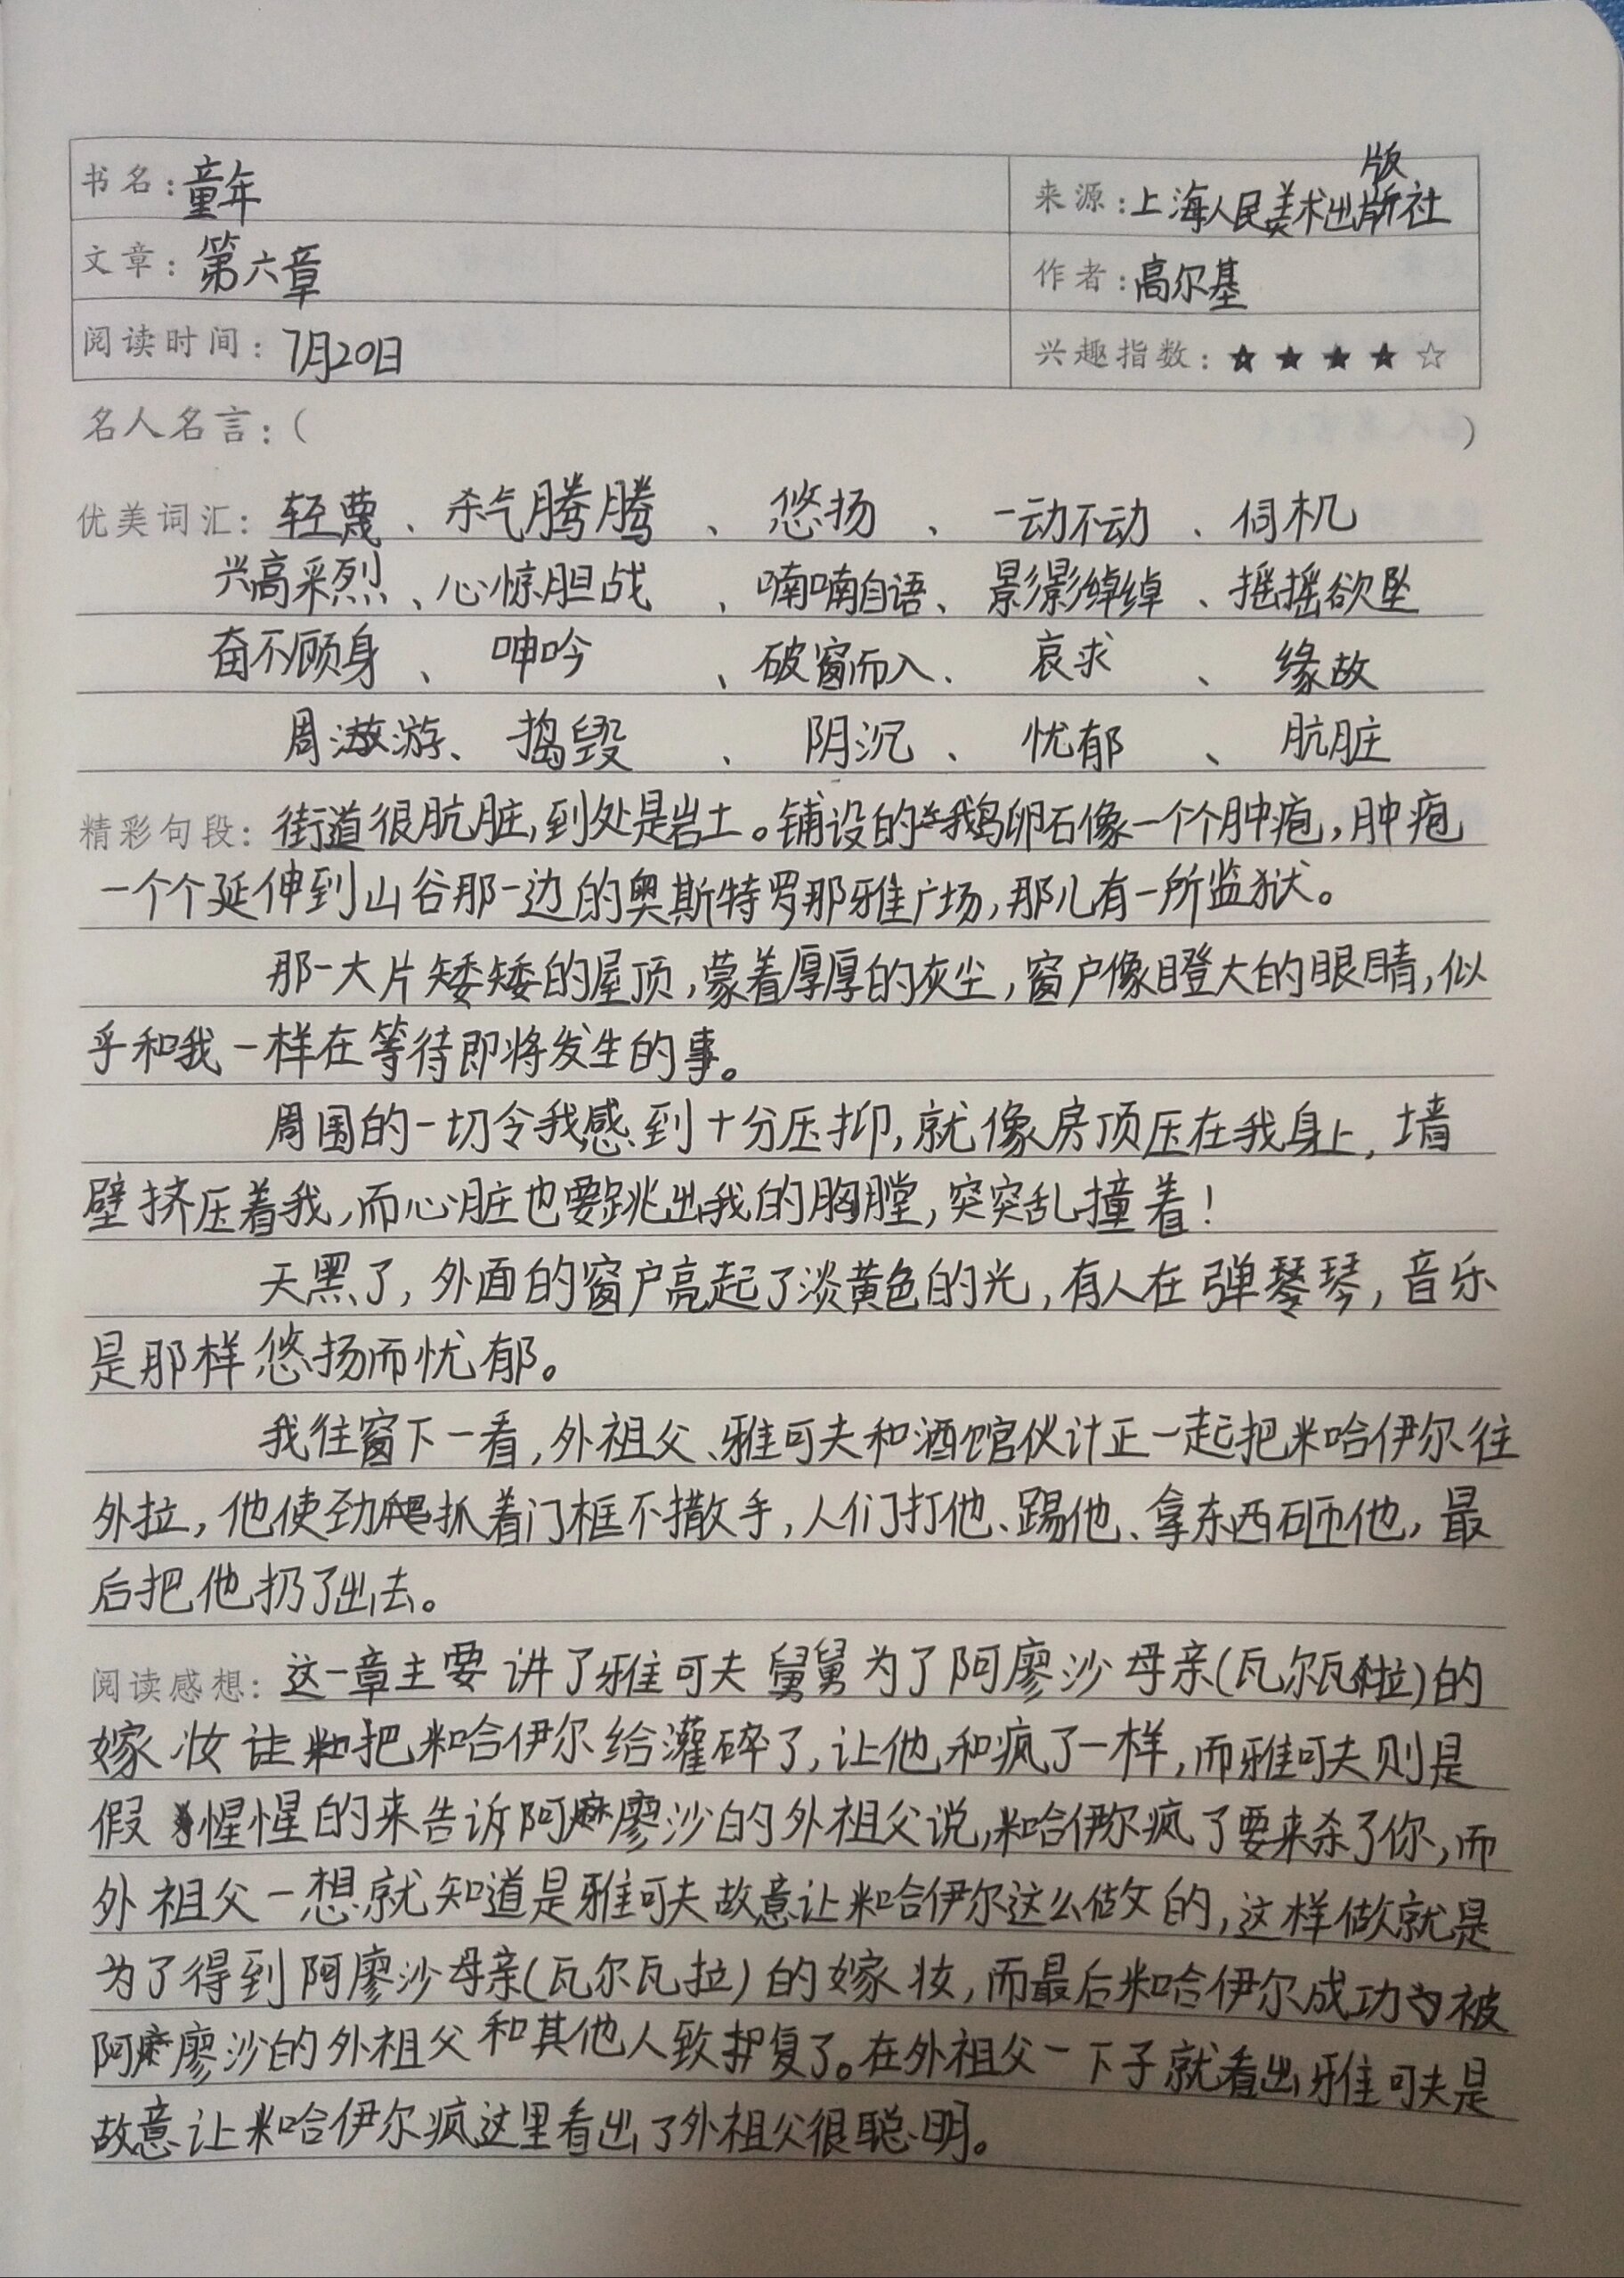 书名：童年
来源：上海人民美术出版社
文章：第六章
作者：高尔基
阅读时间：7月20日
兴趣指数：★★★★☆
名人名言：（ ）
优美词汇：轻蔑、杀气腾腾、悠扬、一动不动、伺机
兴高采烈、心惊胆战、喃喃自语、影影绰绰、摇摇欲坠
奋不顾身、呻吟、破窗而入、哀求、缘故
周游、捣毁、阴沉、忧郁、肮脏
精彩句段：街道很肮脏，到处是岩土。铺设的鹅卵石像一个个肿疱，肿疱
一个个延伸到山谷那一边的奥斯特罗那雅广场，那儿有一所监狱。
那一大片矮矮的屋顶，蒙着厚厚的灰尘，窗户像瞪大的眼睛，似
乎和我一样在等待即将发生的事。
周围的一切令我感到十分压抑，就像房顶压在我身上，墙
壁挤压着我，而心脏也要跳出我的胸膛，突突乱撞着！
天黑了，外面的窗户亮起了淡黄色的光，有人在弹琴，音乐
是那样悠扬而忧郁。
我往窗下一看，外祖父、雅可夫和酒馆伙计正一起把米哈伊尔往
外拉，他使劲抓着门框不撒手，人们打他、踢他、拿东西砸他，最
后把他扔了出去。
阅读感想：这一章主要讲了雅可夫舅舅为了阿廖沙母亲（瓦尔瓦拉）的
嫁妆让把米哈伊尔给灌碎了，让他和疯了一样，而雅可夫则是
假惺惺的来告诉阿廖沙的外祖父说，米哈伊尔疯了要来杀了你，而
外祖父一想就知道是雅可夫故意让米哈伊尔这么做的，这样做就是
为了得到阿廖沙母亲（瓦尔瓦拉）的嫁妆，而最后米哈伊尔成功被
阿廖沙的外祖父和其他人致了。在外祖父一下子就看出雅可夫是
故意让米哈伊尔疯这里看出了外祖父很聪明。